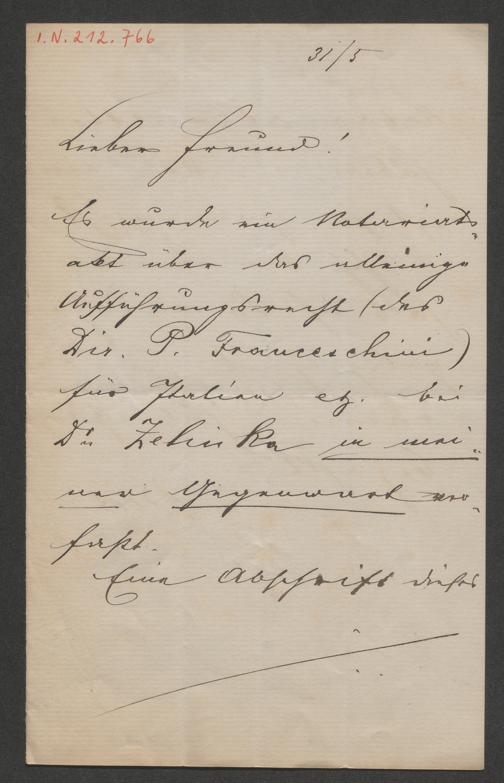 I.N. 212.766
31/5
Lieber Freund!
Es wurde ein Notariats-
akt über das alleinige
Aufführungsrecht (des
Dir. P. Franceschini)
für Italien etz. bei
Dr Zelinka in mei-
ner Gegenwart ver-
faßt.
Eine Abschrift dieses